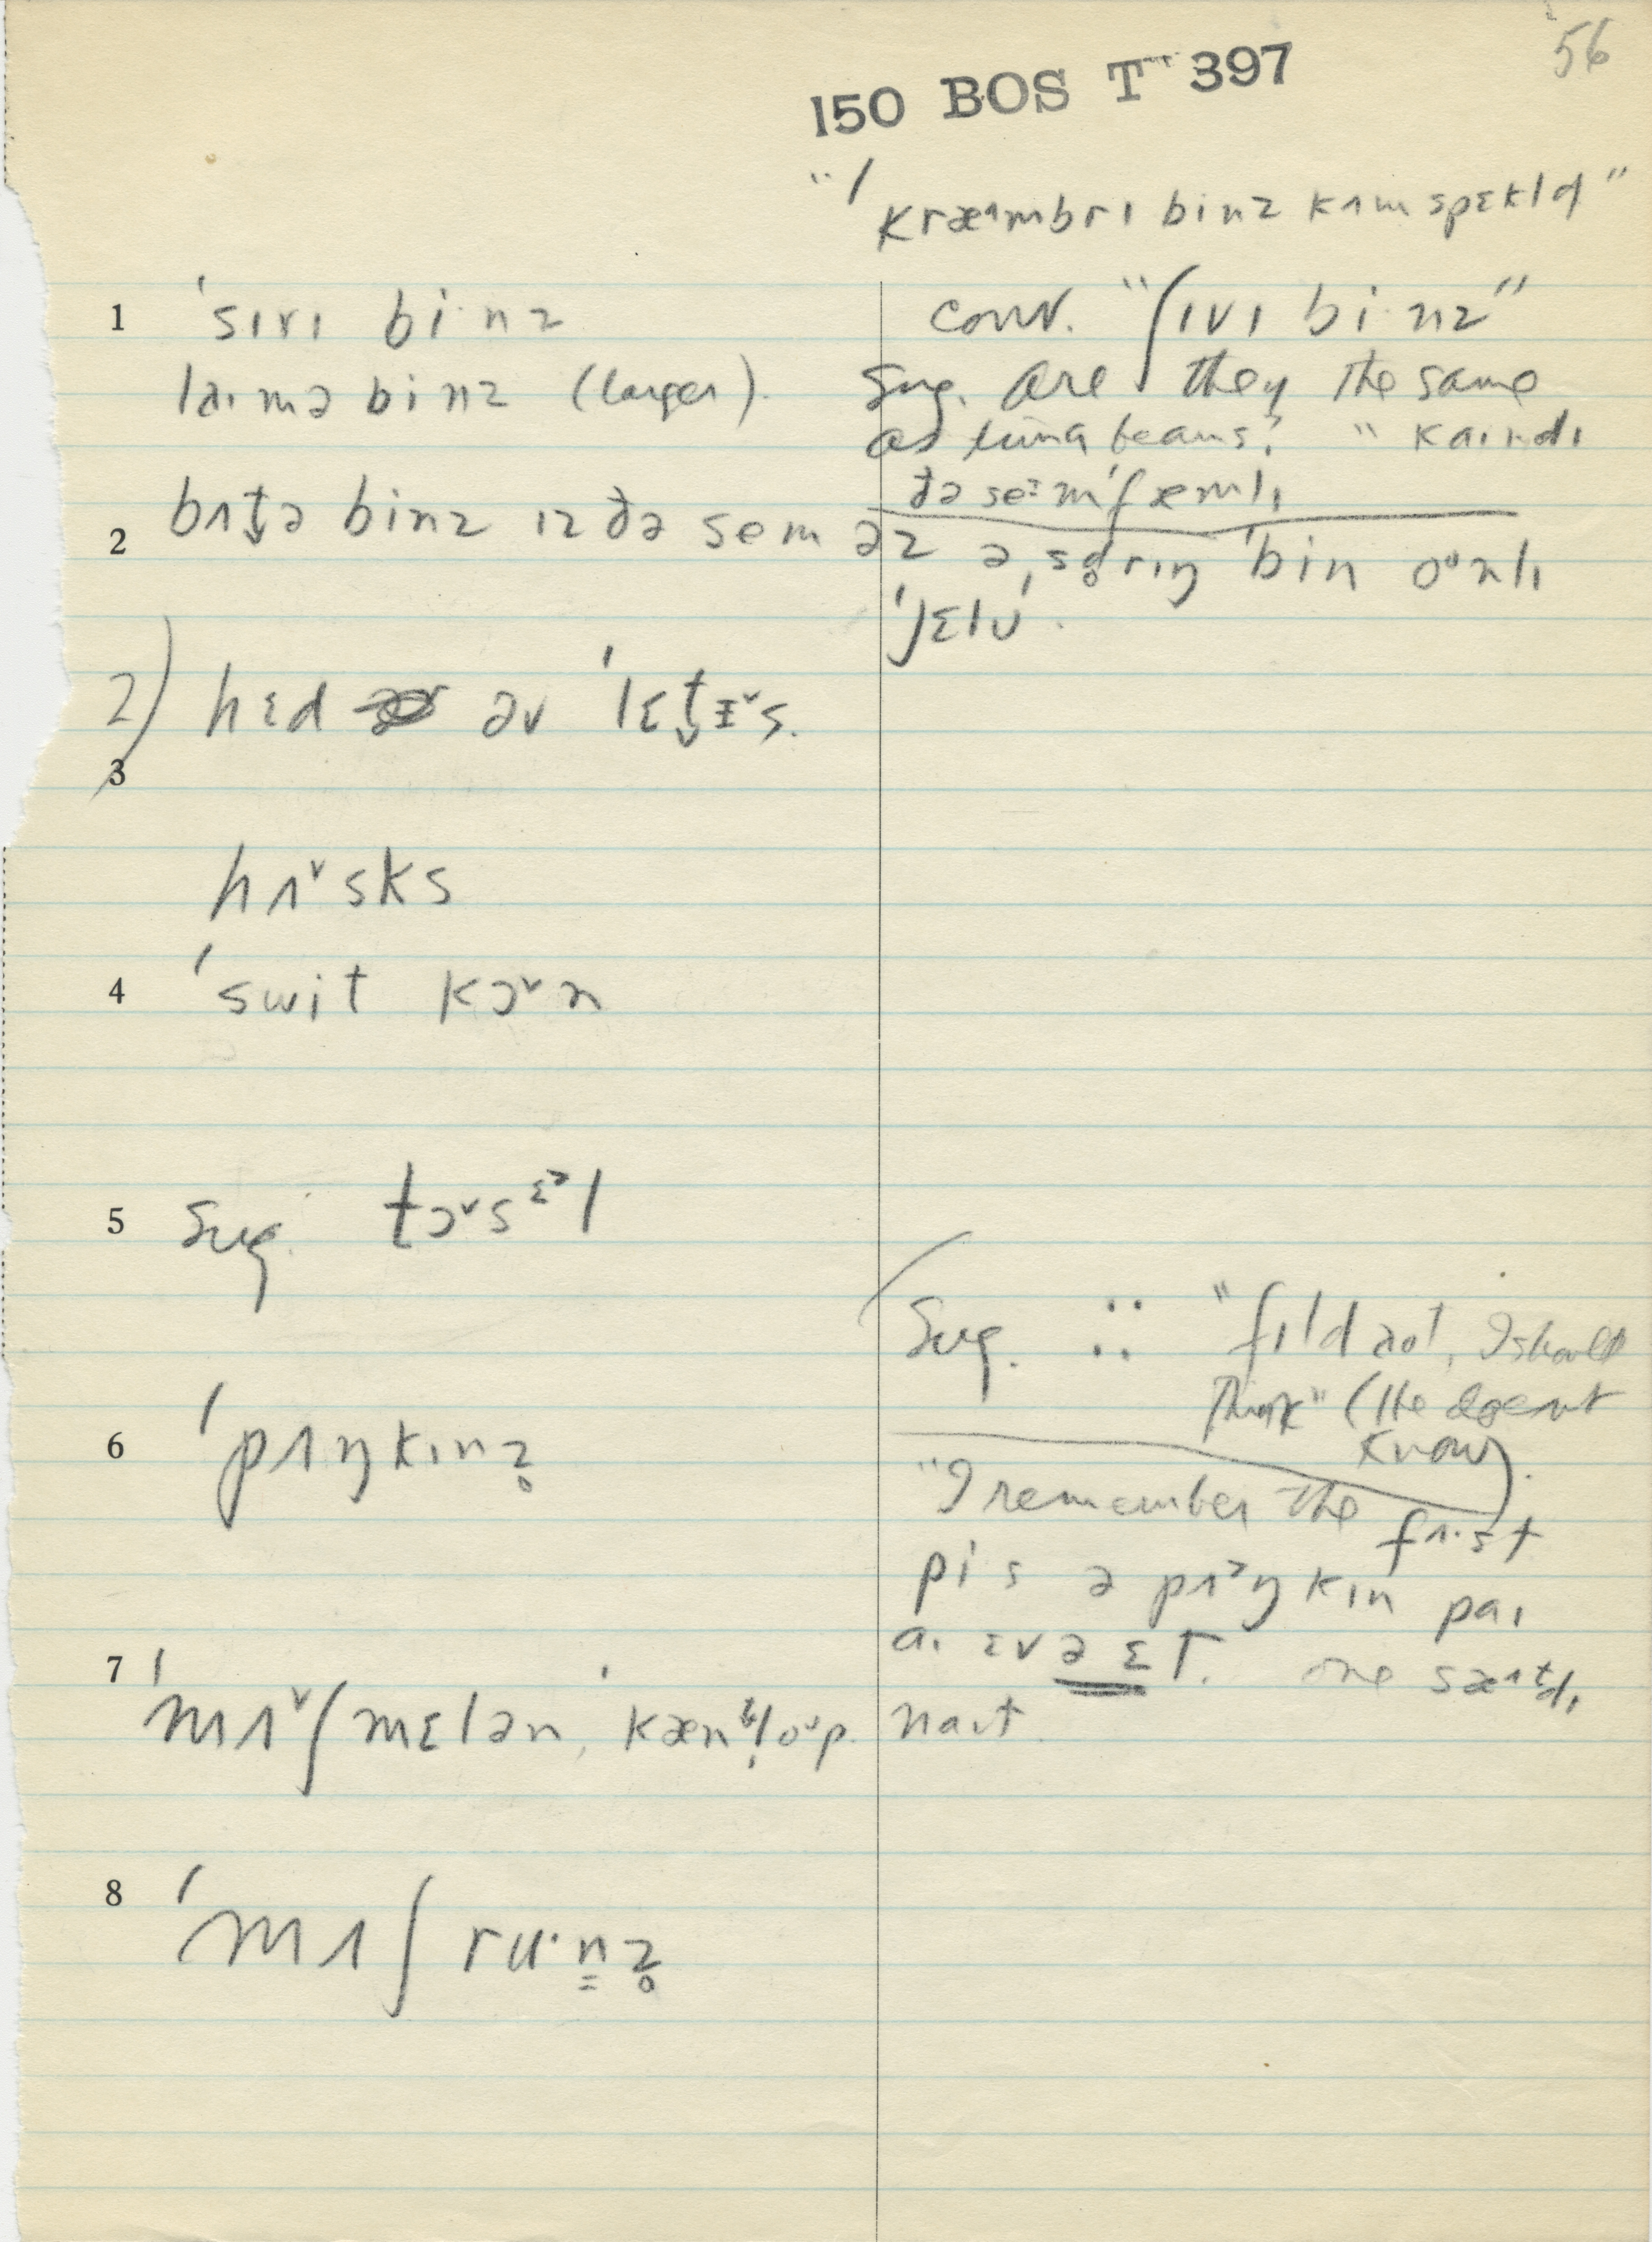 56
150 BOS T 397
"ˈkræ^mbrɪ binz kʌm spɛkld"
1 ˈsɪvɪ bi·nz
conv. "ʃɪvɪ bi·nz"
laɪmə binz (larger).
Sug. are they the same
as lima beans? "kaɪndɪ
ðə seɪmˈfæmlɪ
2 bʌt̬ə binz ɪz ðə sem əz ə ˌsd̥rɪŋ ˈbin oᵘnlɪ
ˈjɛlʊ.
2) hɛd əv ˈlɛt̬ɪ˅s.
3
hʌ˅sks
4 ˈswit kɔ˅n
5 Sug. tɔ˅sᵋᵊl
Sug. :: "fɪld not, I should
think" (He doesnt
know).
6 ˈpʌŋkɪnz̥
"I remember the
fʌ·st
pi s ə pʌᵊŋkɪn paɪ
aɪ ɛvə ɛT. one sæ^tdɪ
naɪt.
7 ˈmʌ˅ʃmɛlən, ˈkæntl̥oᵘp.
8 ˈmʌʃru·nz̥